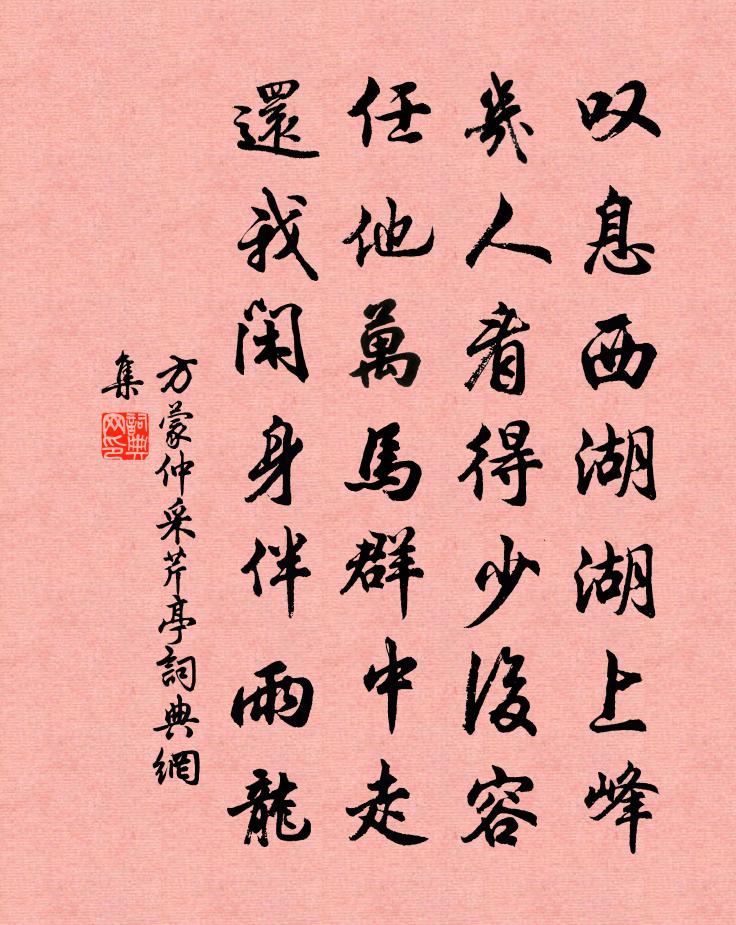 叹息西湖湖上峰
幾人看得少從容
任他萬馬群中走
還我閑身伴雨龍
方蒙仲采芹亭詞典網
集
詞典
网印